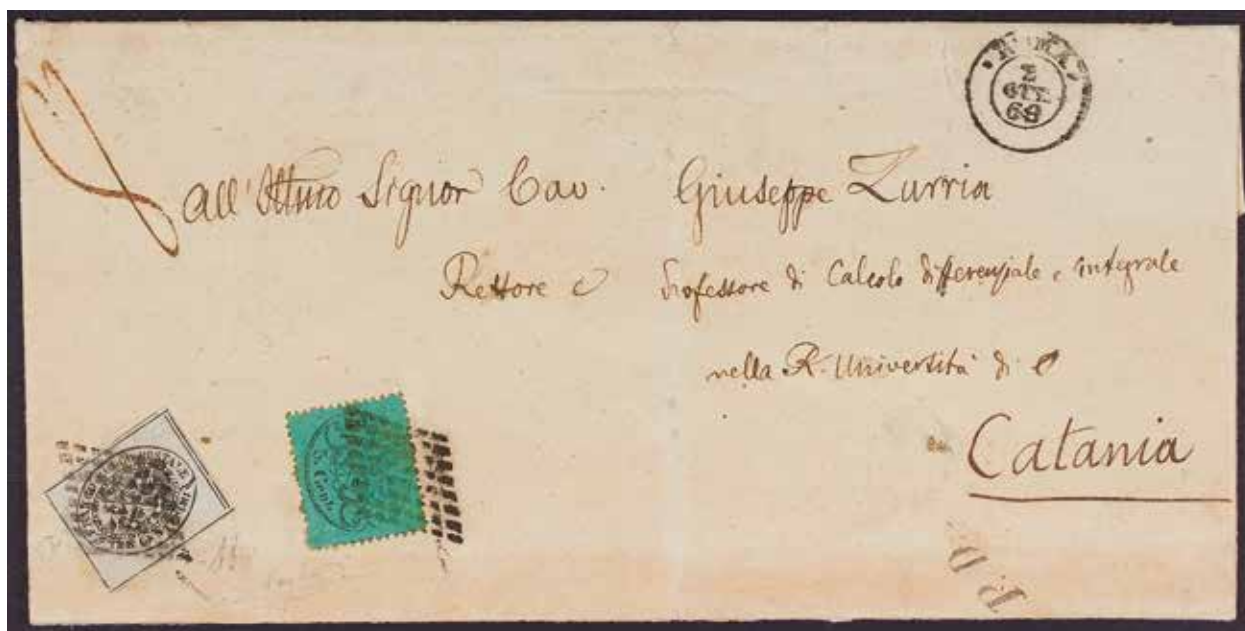 ROMA
OTT.
69
all' Illmo Signor Cav. Giuseppe Zurria
Rettore e Professore di Calcolo differenziale e integrale
nella R. Università di
Catania
5. Cent.
P. D